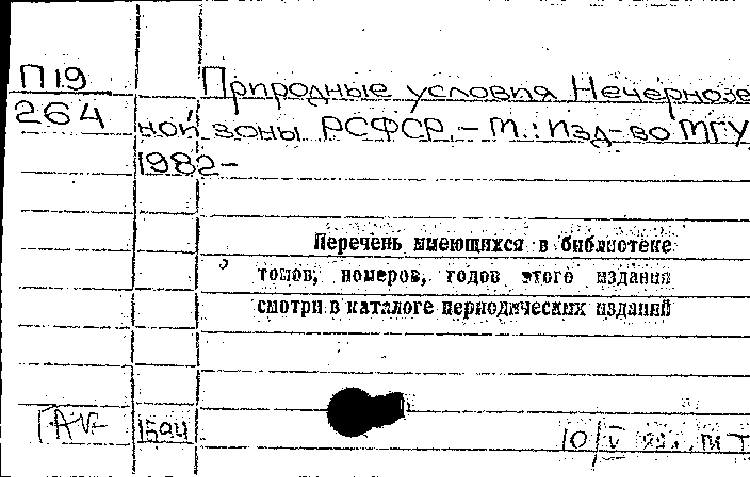 П19 Природные условия Нечернозе
264 ной зоны РСФСР. – М.: Изд-во МГУ
1982–
Перечень имеющихся в библиотеке
томов, номеров, годов этого издания
смотри в каталоге периодических изданий
10/V